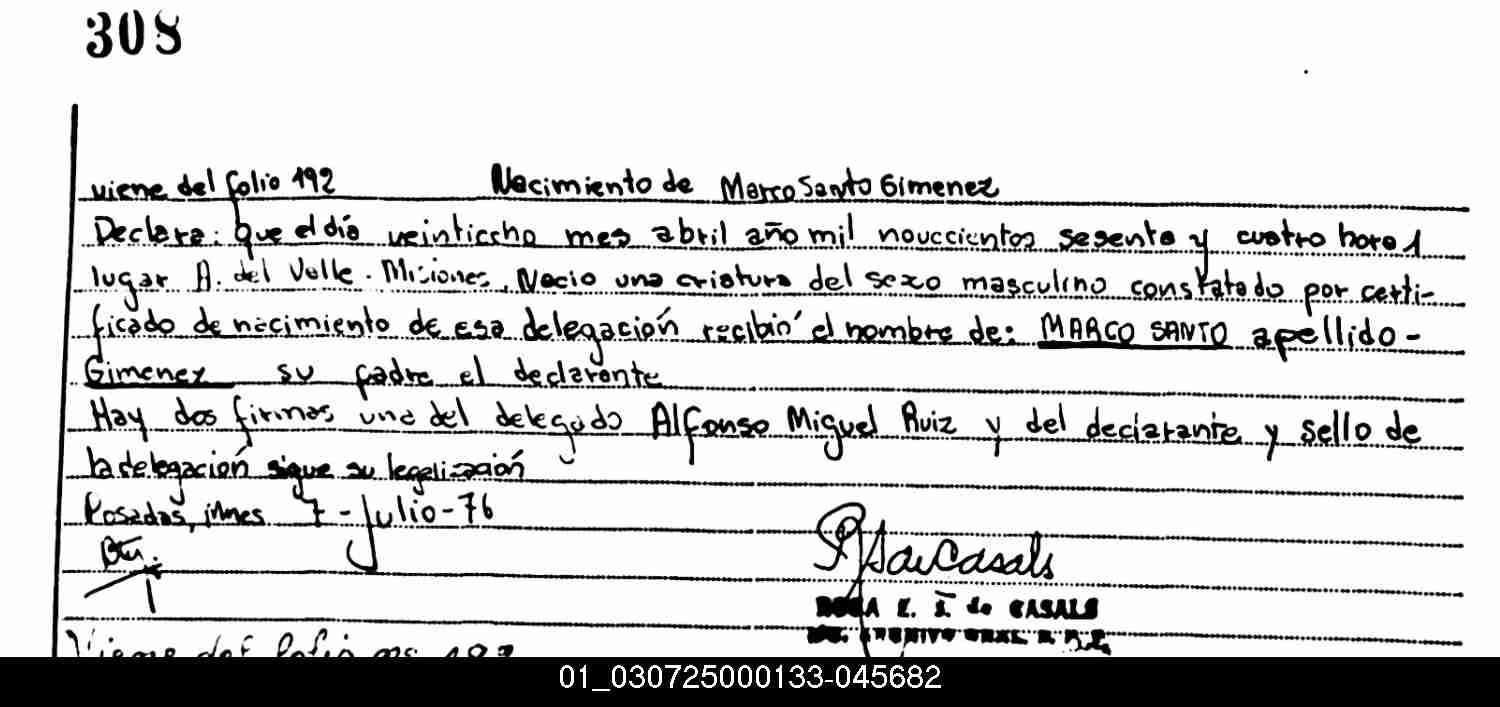 308
viene del folio 192 Nacimiento de Marco Santo Gimenez
Declara: que el dia veintiocho mes abril año mil novecientos sesenta y cuatro hora 1
lugar A. del Valle. Misiones, Nacio una criatura del sexo masculino constatado por certi-
ficado de nacimiento de esa delegación recibió el nombre de: MARCO SANTO apellido-
Gimenez su padre el declarante
Hay dos firmas una del delegado Alfonso Miguel Ruiz y del declarante y sello de
la delegación sigue su legalización
Posadas, Mnes 7-Julio-76
ROSA E. S. de CASALS
ARCHIVO GRAL. R. P.
Viene del folio 192
01_030725000133-045682